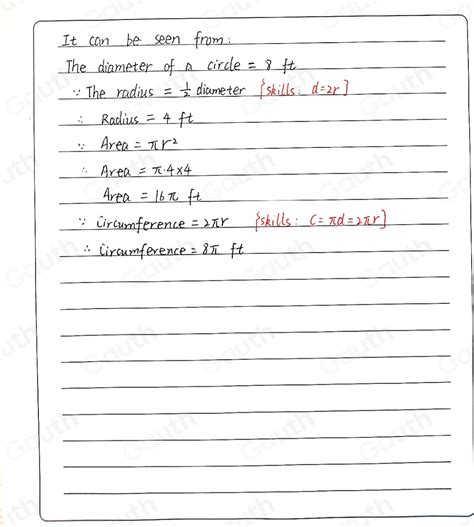 It can be seen from:
The diameter of a circle = 8 ft
∵ The radius = 1/2 diameter {skills: d=2r]
∴ Radius = 4 ft
∵ Area = πr²
∴ Area = π·4×4
Area = 16π ft
∵ Circumference = 2πr {skills: C = πd = 2πr]
∴ Circumference = 8π ft